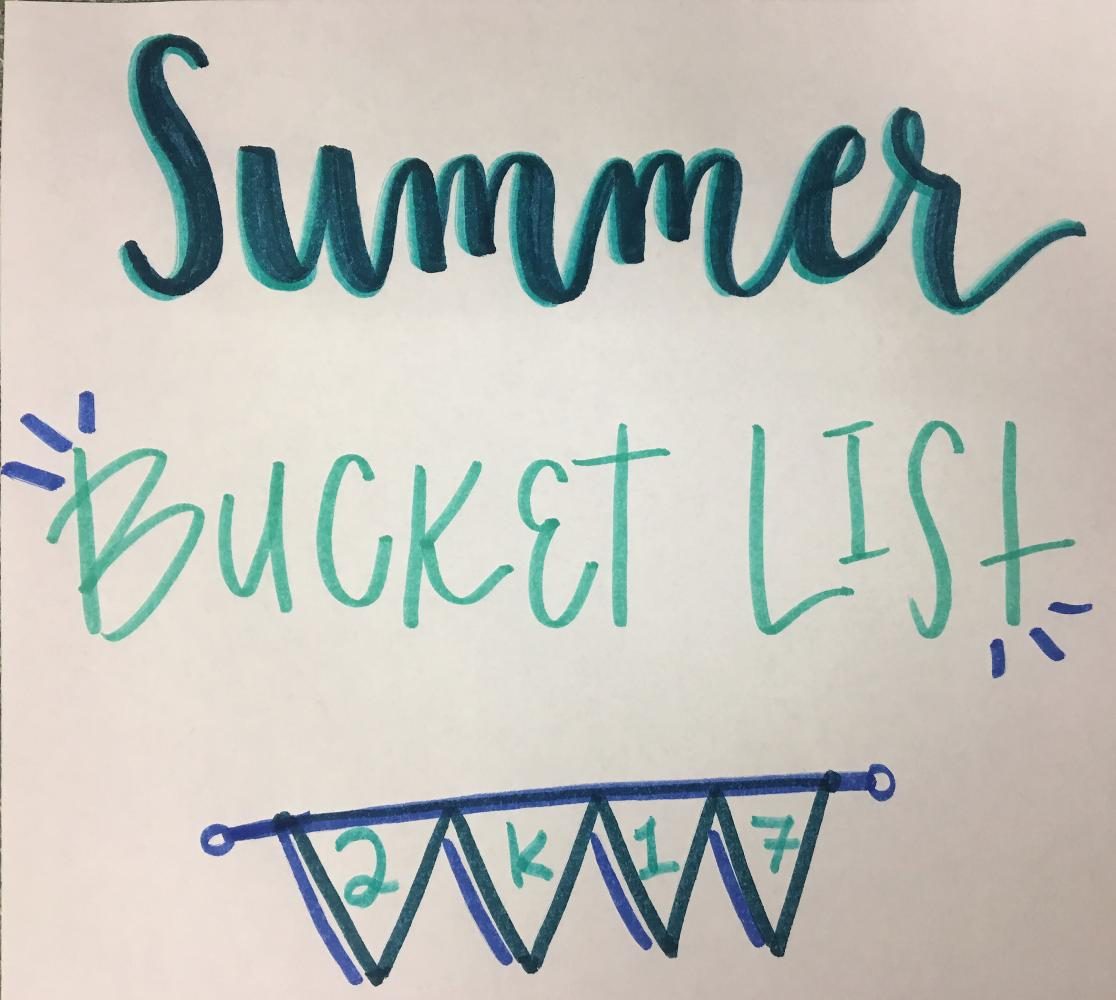 Summer
BUCKET LIST
2K17